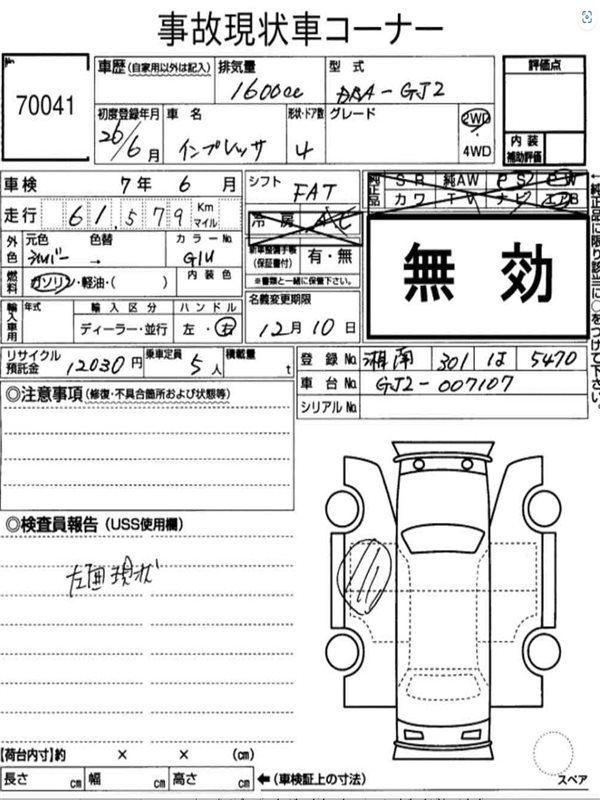 事故現状車コーナー
70041
車歴 (自家用以外は記入)
排気量 1600cc
型式 DBA-GJ2
評価点
初度登録年月 26/6月
車名 インプレッサ
形状・ドア数 4
グレード
2WD
・
4WD
内装
補助評価
車検 7年 6月
シフト FAT
純正品 SR 純AW PS PW
カワ TV ナビ エアB
走行 61,579 Km
マイル
冷房 AC
外色
元色 シルバー
色替 →
カラーNo. G1U
内装色
新車整備手帳
(保証書付) 有・無
※書類と一緒に保管下さい。
無効
燃料 ガソリン・軽油・( )
輸入車用
年式
輸入区分 ディーラー・並行
ハンドル 左・右
名義変更期限
12月10日
←純正品に限り該当に○をつけて下さい。
リサイクル
預託金 12030円
乗車定員 5人
積載量 t
登録No. 湘南 301 は 5470
車台No. GJ2-007107
シリアルNo.
◎注意事項 (修復・不具合箇所および状態等)
◎検査員報告 (USS使用欄)
左面現状
【荷台内寸】約 × × (cm)
長さ cm 幅 cm 高さ cm ←(車検証上の寸法)
スペア